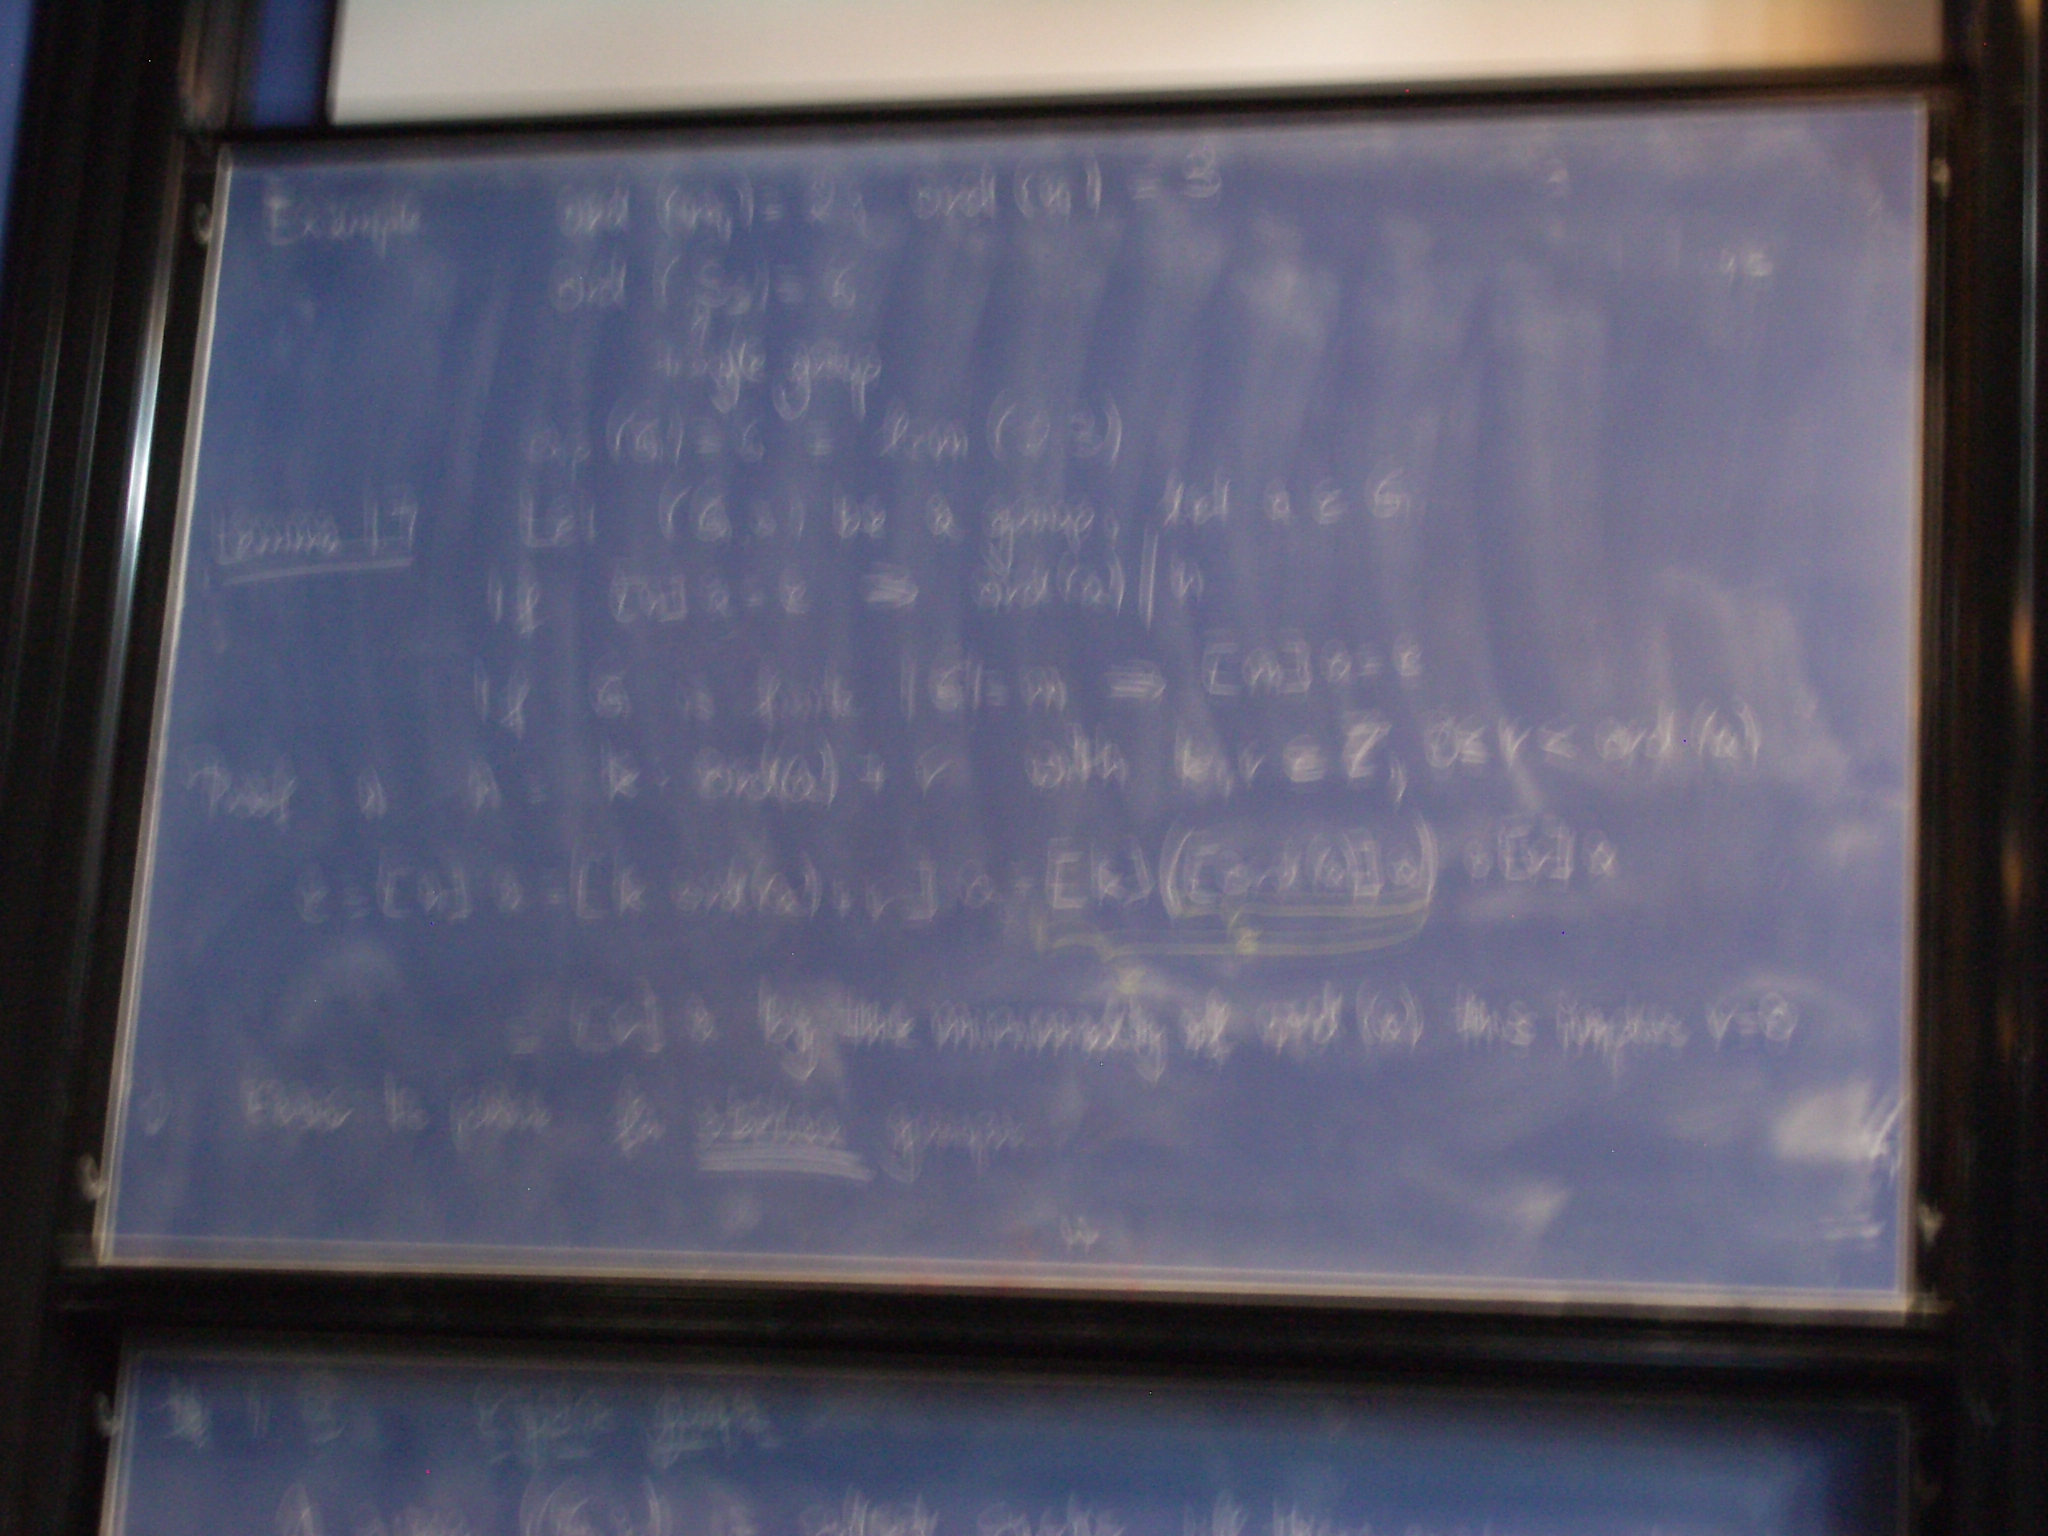 Example ord (m1) = 2, ord (r1) = 3
ord (S3) = 6
triangle group
exp (G) = 6 = lcm (3, 2)
Lemma 17 Let (G, o) be a group, let a ∈ G.
If [n] a = e ⇒ ord(a) | n
If G is finite |G| = m ⇒ [m] a = e
Proof n = k · ord(a) + r with k, r ∈ Z, 0 ≤ r < ord (a)
e = [n] a = [k ord(a) + r] a = [k] ([ord(a)] a) o [r] a
e
e
= [r] a by the minimality of ord (a) this implies r = 0
Easy to prove for abelian groups
Cyclic groups
A group (G, o) is called cyclic iff there